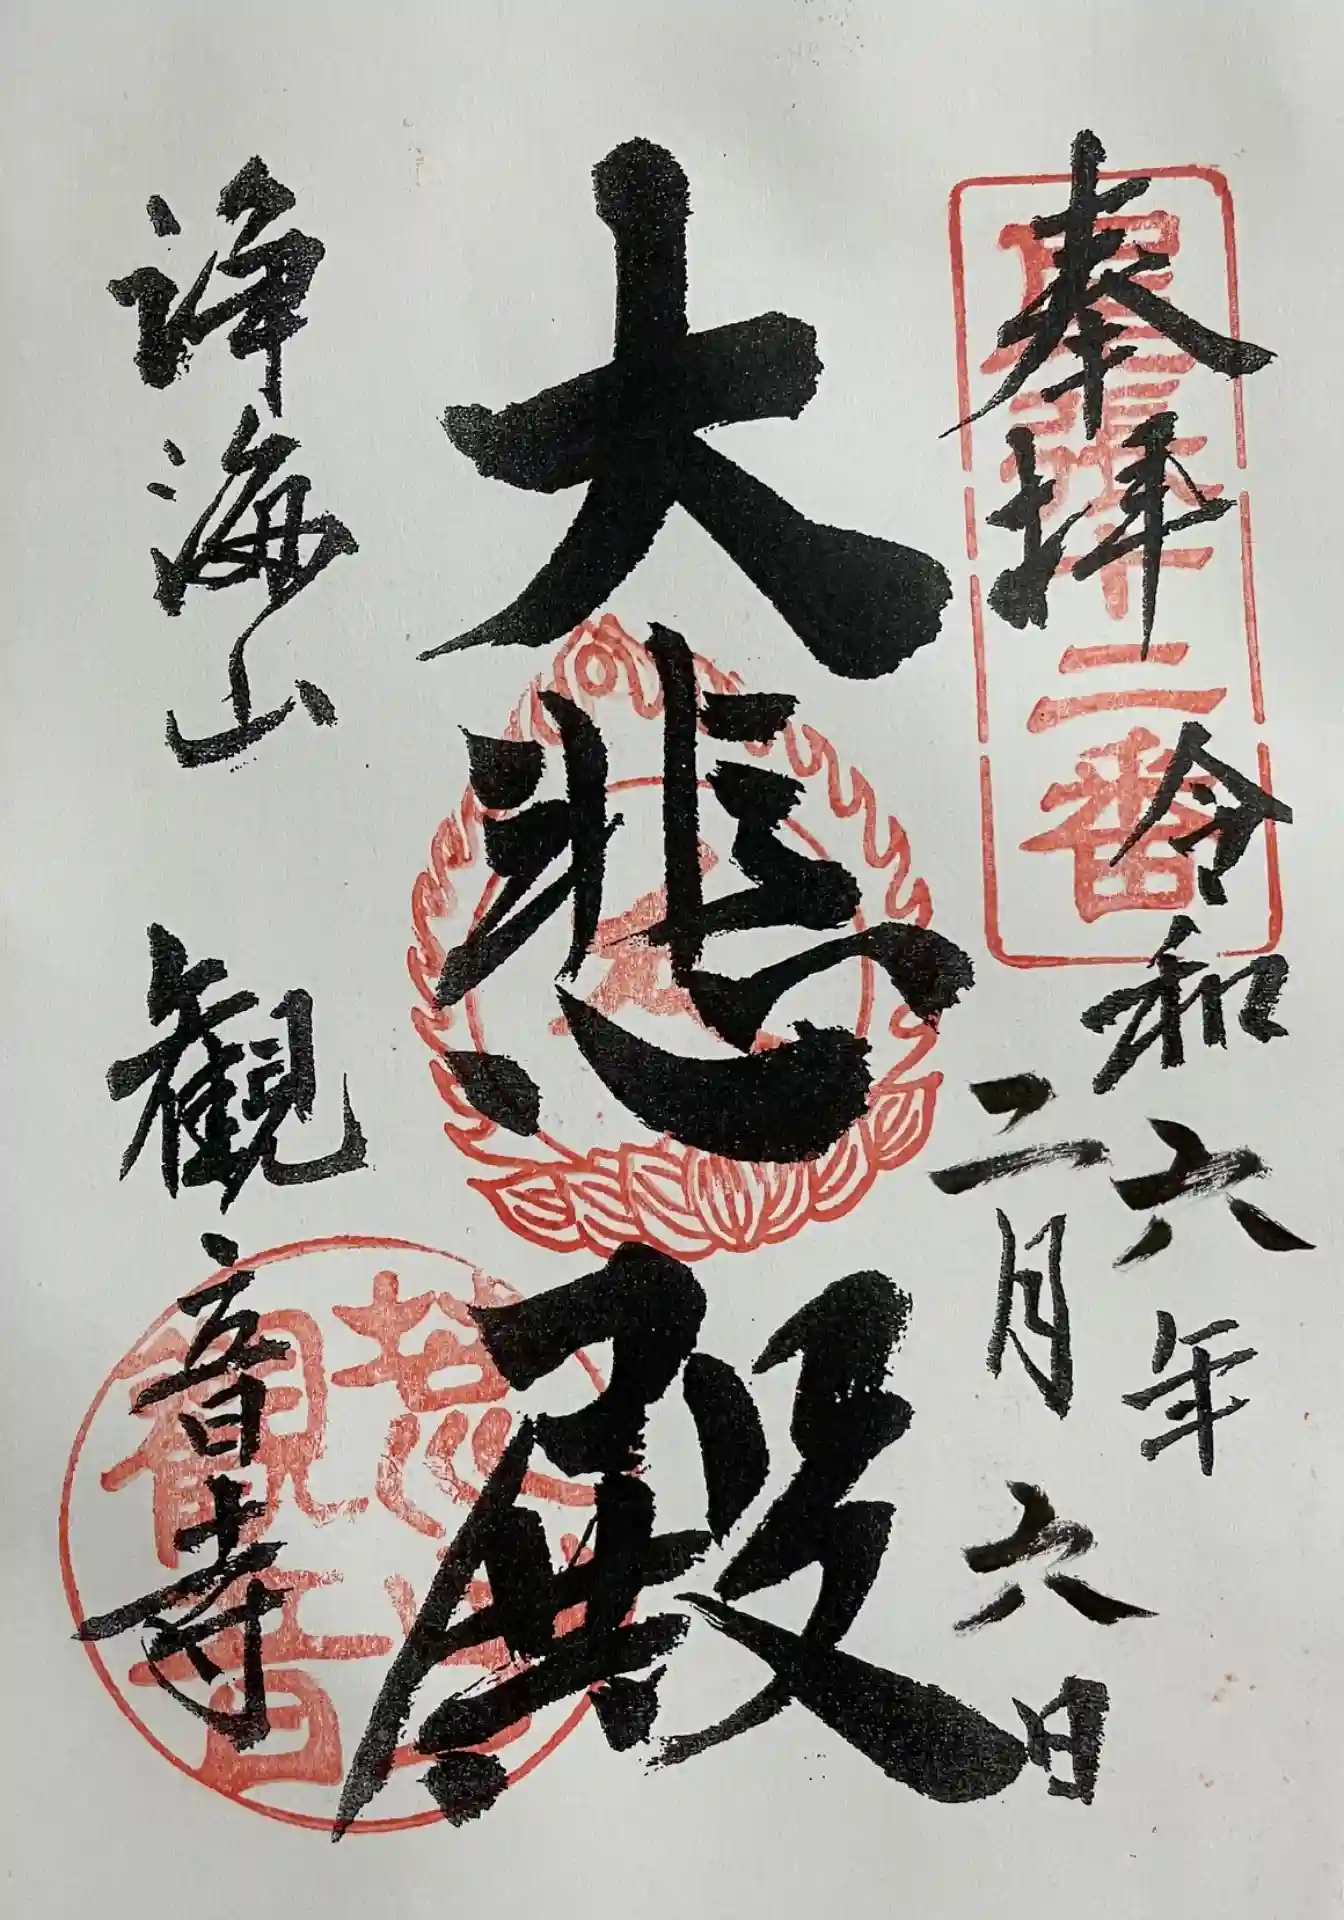 奉拝
尾張十二番
令和六年
二月六日
大悲殿
浄海山
観音寺
荒子
観音